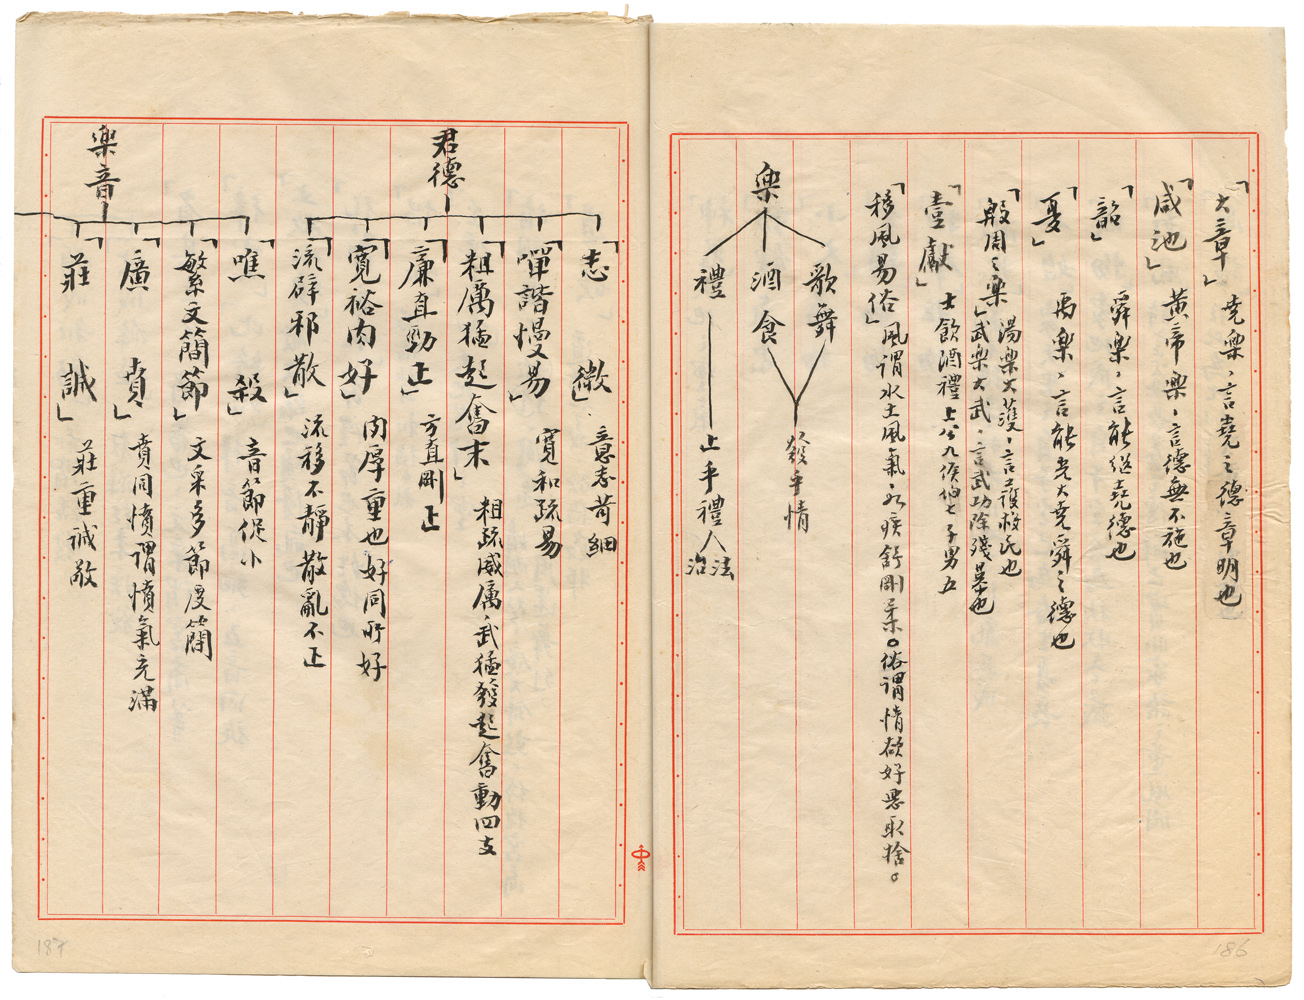 「大章」堯楽、言堯之德章明也
「咸池」黄帝楽、言德無不施也
「韶」舜楽、言能继堯德也
「夏」禹楽、言能光大堯舜之德也
「殷周之楽」湯楽大護、言護救民也
武楽大武、言武功除殘暴也
「壹獻」士飲酒禮 上公九侯伯七子男五
「移風易俗」風謂水土風氣、疾舒剛柔。俗謂情欲好惡取捨。
楽
歌舞
酒食
發乎情
禮
止乎禮
法
治
186
君德
「志微」意志苛細
「嘽諧慢易」寬和疏易
「粗厲猛起奮末」粗疏威厲、武猛發起奮動四支
「廉直勁正」方直剛正
「寬裕肉好」肉厚重也好同所好
「流辟邪散」流移不靜散亂不正
楽音
「噍殺」音節促小
「繁文簡節」文采多節度簡
「廣賁」賁同憤謂憤氣充滿
「莊誠」莊重誠敬
187